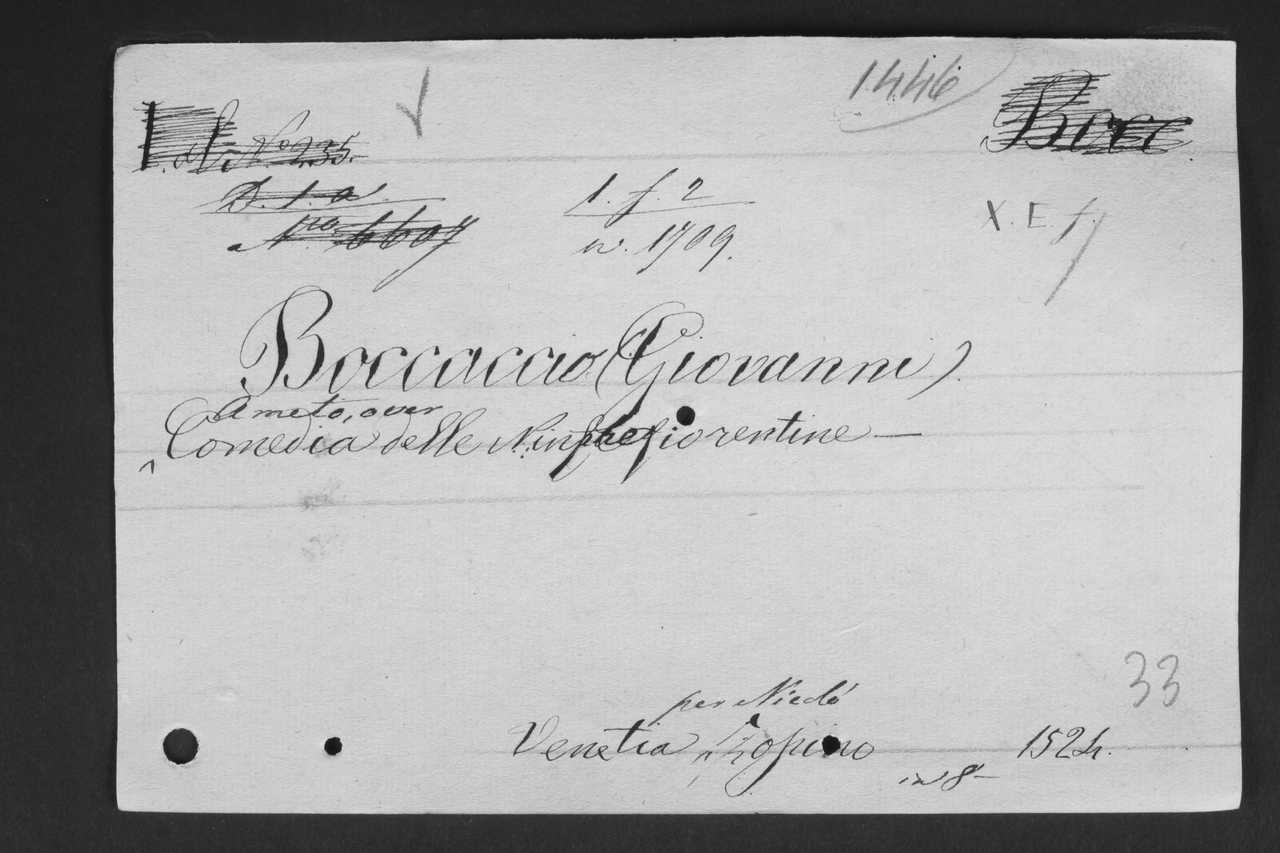 1446
Bocc
No 235.
D. 1. a.
1. f. 2
X. E. f.
Nro. 6607
n. 1709.
Boccaccio (Giovanni).
Ameto, over
Comedia delle Ninfe fiorentine —
33
per Nicolò
Venetia Zopino 1524.
in 8–